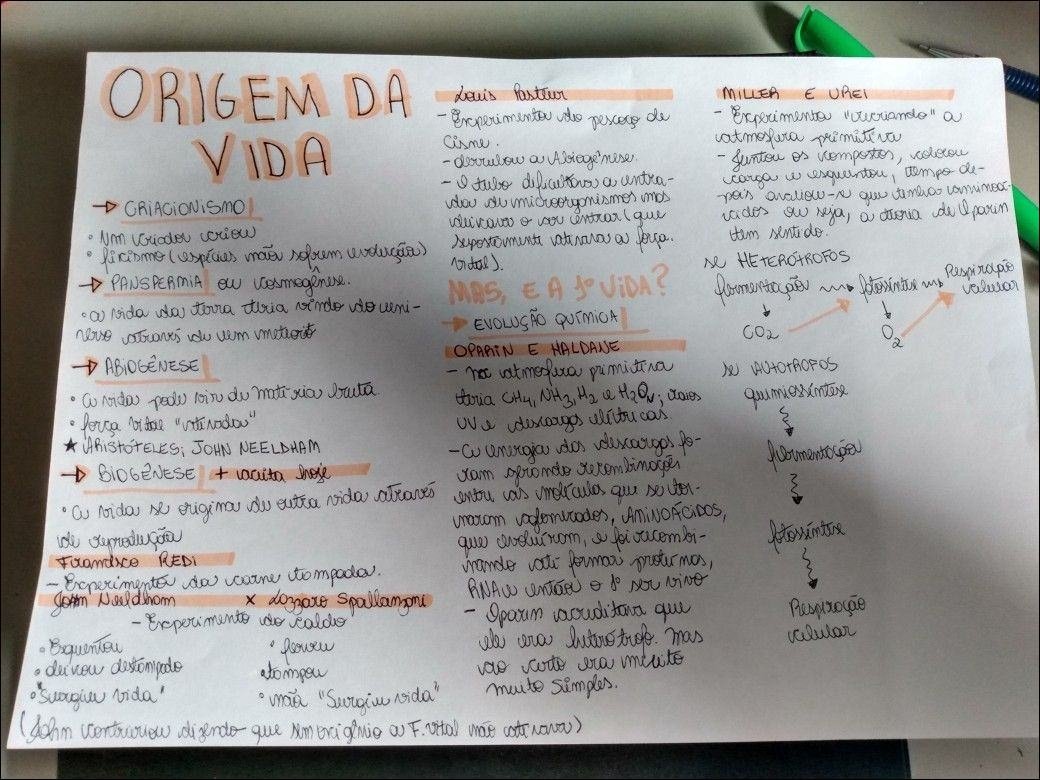 ORIGEM DA
VIDA
→ CRIACIONISMO
• Um criador criou
• fixismo (espécies não sofrem evolução)
→ PANSPERMIA ou cosmogênese.
• a vida da terra teria vindo do uni-
verso através de um meteoro
→ ABIOGÊNESE
• a vida pode vir de matéria bruta.
• força vital "ativada"
★ ARISTÓTELES; JOHN NEELDHAM
→ BIOGÊNESE + aceita hoje
• a vida se origina de outra vida através
de reprodução
Francisco REDI
- Experimento da carne tampada.
John Neeldham x Lazzaro Spallanzani
- Experimento do caldo
• Esquentou
• deixou destampado
• "Surgiu vida"
• ferveu
• tampou
• não "Surgiu vida"
(John contrariou dizendo que sem oxigênio a F. vital não ativava)
Louis Pasteur
- Experimento do pescoço de
cisne.
- derrubou a Abiogênese.
- O tubo dificultava a entra-
da de microorganismos mas
deixava o ar entrar (que
supostamente ativava a força
vital).
MAS, E A 1ª VIDA?
→ EVOLUÇÃO QUÍMICA
OPARIN E HALDANE
- na atmosfera primitiva
teria CH4, NH3, H2 e H2Ov; raios
UV e descargas elétricas.
- a energia das descargas fo-
ram gerando recombinações
entre as moléculas que se tor-
naram aglomerados, AMINOÁCIDOS,
que evoluíram, e foi recombi-
nando até formar proteínas,
RNA e então o 1º ser vivo
- Oparin acreditava que
ele era heterótrofo. Mas
ao certo era
muito simples.
MILLER E UREI
- Experimento "recriando" a
atmosfera primitiva
- Juntou os compostos, colocou
carga e esquentou, tempo de-
pois avaliou-se que tinha aminoá-
cidos ou seja, a teoria de Oparin
tem sentido.
se HETERÓTROFOS
fermentação → fotossíntese → Respiração
celular
CO2
O2
se AUTÓTROFOS
quimiossíntese
fermentação
fotossíntese
Respiração
celular